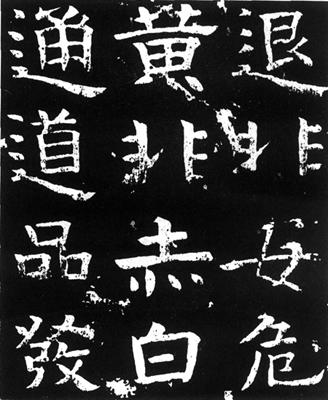 退非安危
黄非赤白
通道品發